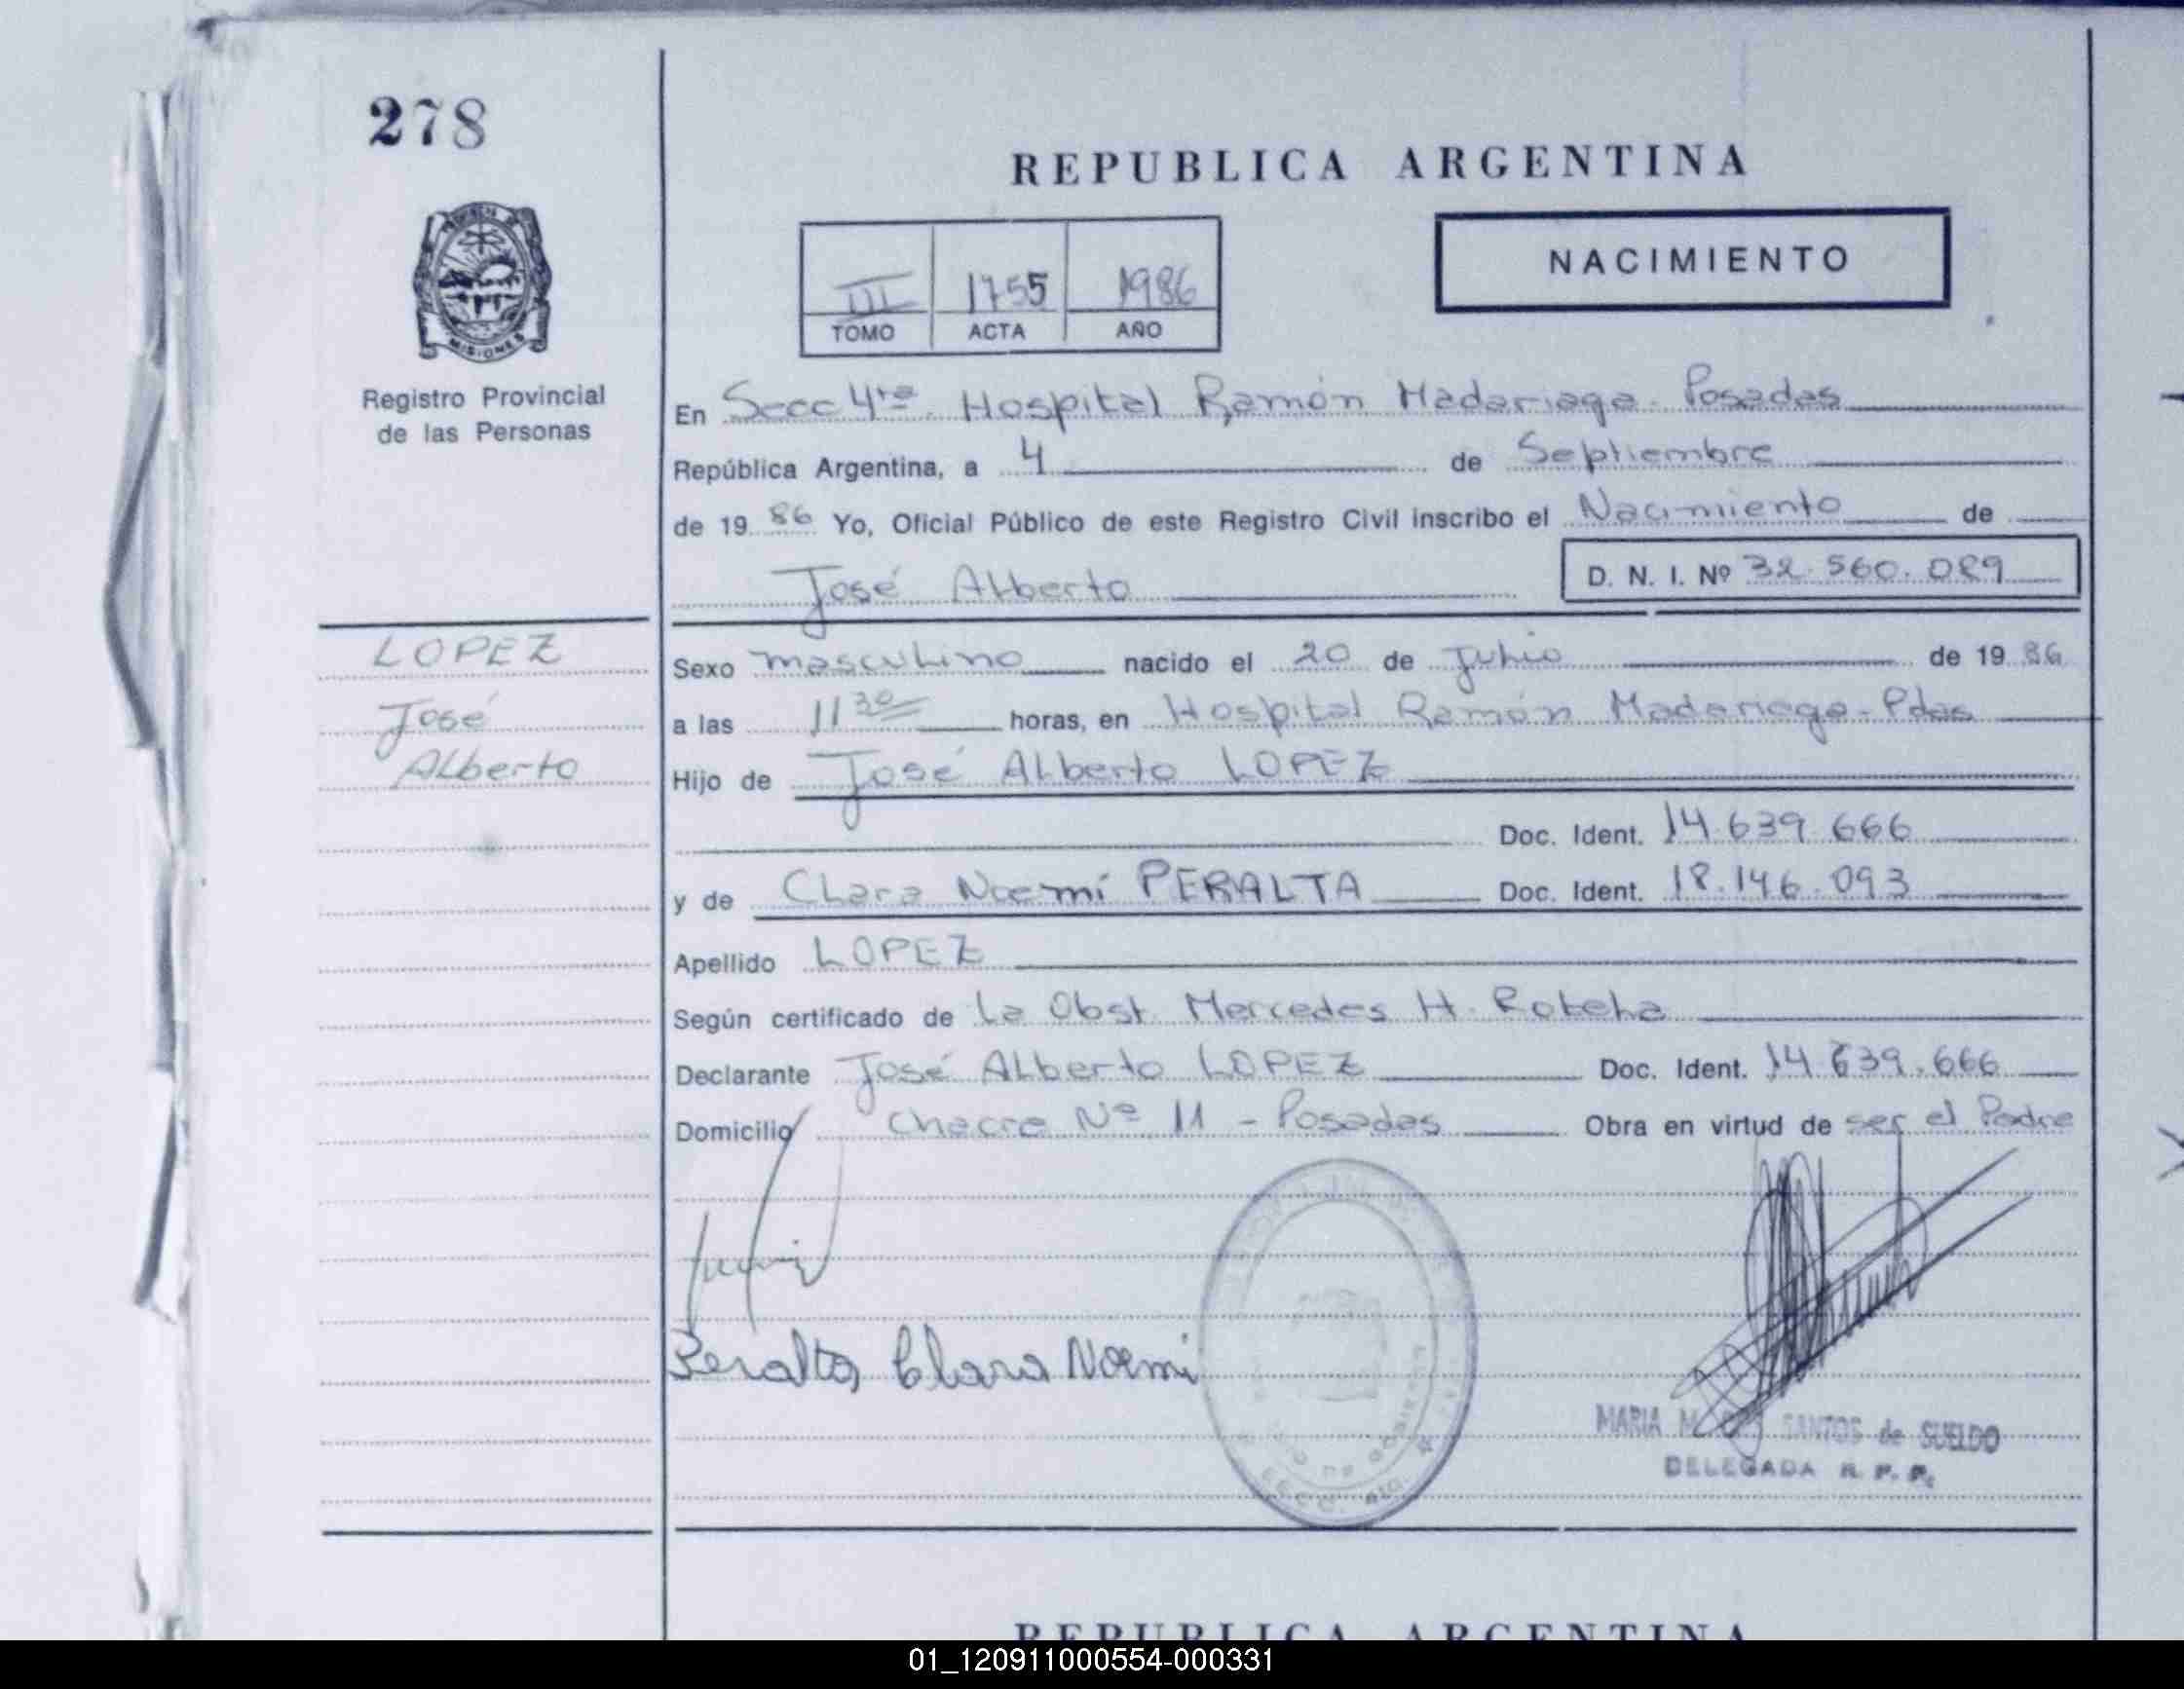 278
REPUBLICA ARGENTINA
NACIMIENTO
III 1755 1986
TOMO ACTA AÑO
MISIONES
Registro Provincial
de las Personas
En Secc 4ta. Hospital Ramón Madariaga - Posadas
República Argentina, a 4 de Septiembre
de 19 86 Yo, Oficial Público de este Registro Civil inscribo el Nacimiento de
José Alberto
D. N. I. Nº 32.560.089
LOPEZ
José
Alberto
Sexo masculino nacido el 20 de Julio de 19 86
a las 11 30 horas, en Hospital Ramón Madariaga - Pdas
Hijo de José Alberto LOPEZ
Doc. Ident. 14.639.666
y de Clara Noemí PERALTA Doc. Ident. 18.146.093
Apellido LOPEZ
Según certificado de La Obst. Mercedes H.
Declarante José Alberto LOPEZ Doc. Ident. 14.639.666
Domicilio Chacra Nº 11 - Posadas Obra en virtud de ser el Padre
Peralta Clara Noemi
MARIA M. SANTOS de SUELDO
DELEGADA R. P. P.
REPUBLICA ARGENTINA
01_120911000554-000331